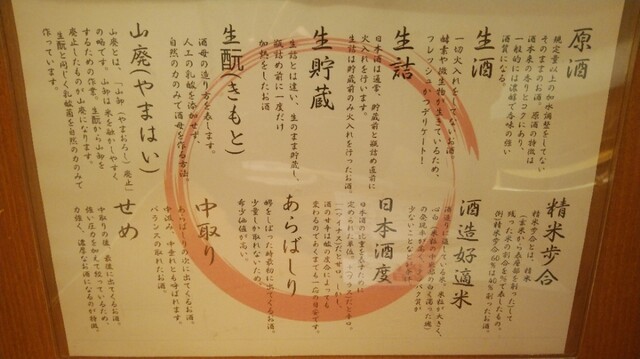 原酒
規定量以上の加水調整をしてない
そのままのお酒。原酒の特徴は
日本酒本来の香りとコクにあり、
一般的には濃醇で香味の強い
酒質になる。
生酒
一切火入れをしてないお酒。
酵素や微生物が生きているため、
フレッシュかつデリケート!
生詰
日本酒は通常、貯蔵前と瓶詰め直前に
火入れを行います。
生詰は貯蔵前のみ火入れを行ったお酒。
生貯蔵
生詰とは違い、生のまま貯蔵し、
瓶詰め前に一度だけ
加熱をしたお酒。
生酛(きもと)
酒母の造り方を表します。
人工の乳酸を添加せず、
自然の力のみで酒母を作る方法。
山廃(やまはい)
山廃とは、「山卸(やまおろし)廃止」
の略です。山卸は米を溶かしやすく
するための作業。生酛から山卸を
廃止したものが山廃になります。
生酛と同じく乳酸菌を自然の力のみで
作っています。
精米歩合
精米歩合とは、精米
(玄米から表層部を削って)して
残った米の割合を%で表したもの。
例)精米歩合60%は40%削ったお酒。
酒造好適米
酒造りに適している米。米粒が大きく、
心白(米粒の中心部の白く濁った塊)
の発現率が高い
少ないことなど
日本酒度
日本酒の比重を
定められ
(-)(マイナス)だと甘口。
酒の甘辛は酸の度合によっても
変わるのであくまでも一応の目安です。
あらばしり
醪をしぼった時最初に出てくるお酒。
少量しか取れないため、
希少価値が高い。
中取り
あらばしりの次に出てくるお酒。
中汲み、中垂れとも呼ばれます。
バランスの取れたお酒。
せめ
中取りの後、最後に出てくるお酒。
強い圧力を加えて搾っているため、
力強く、濃厚なお酒になるのが特徴。